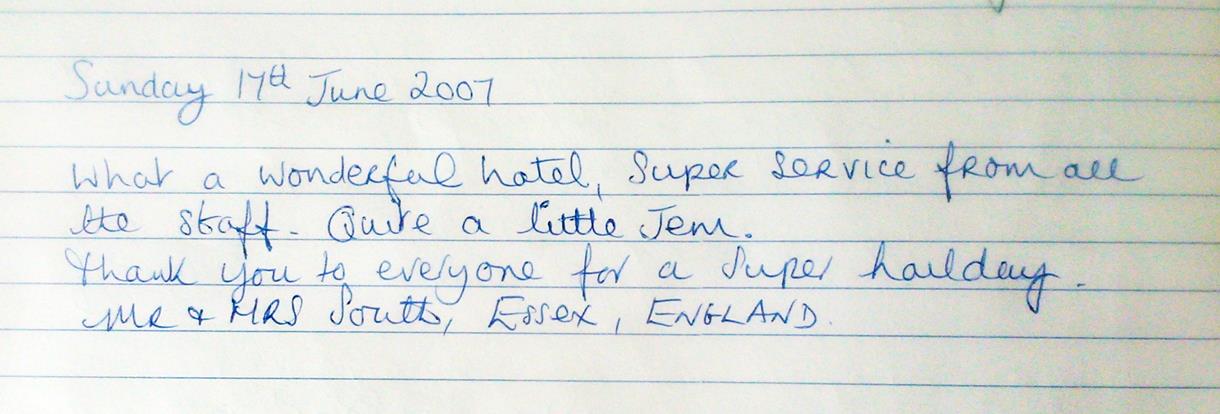 Sunday 17th June 2007
What a wonderful hotel, Super Service from all
the staff - Quite a little Jem.
Thank you to everyone for a Super hailday.
MR & MRS South, Essex, ENGLAND.